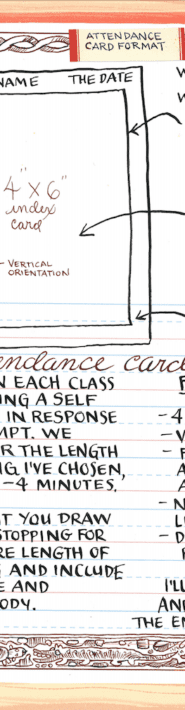 ATTENDANCE
CARD FORMAT
NAME THE DATE
4" X 6"
index
card
- VERTICAL
ORIENTATION
endance card
N EACH CLASS
ING A SELF
IN RESPONSE
MPT. WE
R THE LENGTH
G I'VE CHOSEN,
-4 MINUTES.
T YOU DRAW
STOPPING FOR
RE LENGTH OF
S AND INCLUDE
E AND
ODY.
- 4
- V
- F
A
A
- N
L
- D
I'LL
AN
THE EN